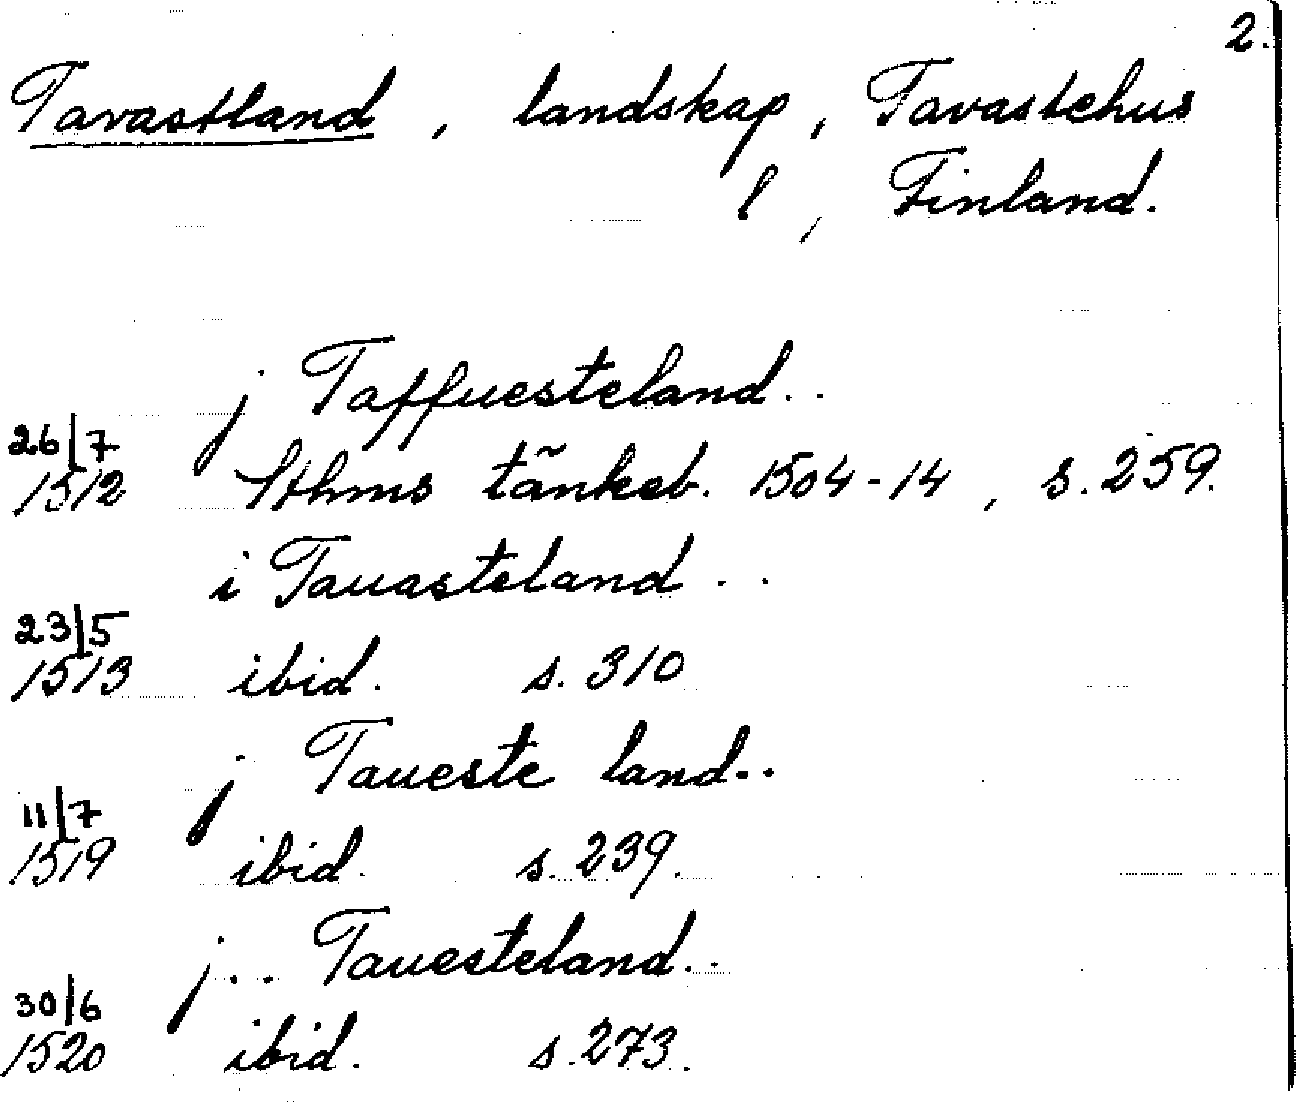 2.
Tavastland, landskap, Tavastehus
l, Finland.
j Taffuesteland..
26/7
1512 Sthms tänkeb. 1504-14, s. 259.
i Tauasteland ..
23/5
1513 ibid. s. 310
j Taueste land..
11/7
1519 ibid. s. 239.
j.. Tauesteland..
30/6
1520 ibid. s. 273.